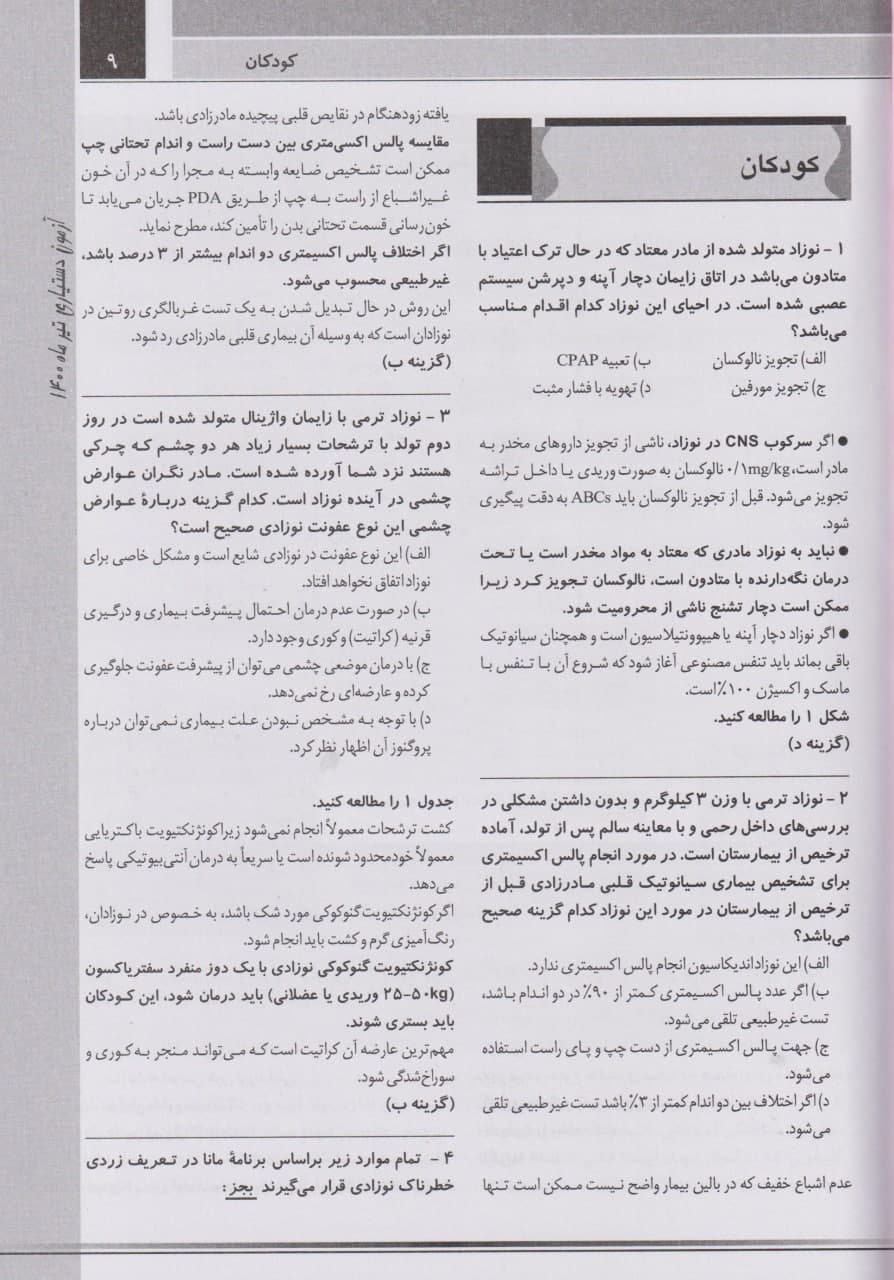 ۹
کودکان
آزمون دستیاری تیر ماه ۱۴۰۰
کودکان
۱ - نوزاد متولد شده از مادر معتاد که در حال ترک اعتیاد با
متادون می‌باشد در اتاق زایمان دچار آپنه و دپرشن سیستم
عصبی شده است. در احیای این نوزاد کدام اقدام مناسب
می‌باشد؟
الف) تجویز نالوکسان ب) تعبیه CPAP
ج) تجویز مورفین د) تهویه با فشار مثبت
● اگر سرکوب CNS در نوزاد، ناشی از تجویز داروهای مخدر به
مادر است، ۰/۱mg/kg نالوکسان به صورت وریدی یا داخل تراشه
تجویز می‌شود. قبل از تجویز نالوکسان باید ABCs به دقت پیگیری
شود.
● نباید به نوزاد مادری که معتاد به مواد مخدر است یا تحت
درمان نگه‌دارنده با متادون است، نالوکسان تجویز کرد زیرا
ممکن است دچار تشنج ناشی از محرومیت شود.
● اگر نوزاد دچار آپنه یا هیپوونتیلاسیون است و همچنان سیانوتیک
باقی بماند باید تنفس مصنوعی آغاز شود که شروع آن با تنفس با
ماسک و اکسیژن ۱۰۰٪ است.
شکل ۱ را مطالعه کنید.
(گزینه د)
۲ - نوزاد ترمی با وزن ۳ کیلوگرم و بدون داشتن مشکلی در
بررسی‌های داخل رحمی و با معاینه سالم پس از تولد، آماده
ترخیص از بیمارستان است. در مورد انجام پالس اکسیمتری
برای تشخیص بیماری سیانوتیک قلبی مادرزادی قبل از
ترخیص از بیمارستان در مورد این نوزاد کدام گزینه صحیح
می‌باشد؟
الف) این نوزاد اندیکاسیون انجام پالس اکسیمتری ندارد.
ب) اگر عدد پالس اکسیمتری کمتر از ۹۰٪ در دو اندام باشد،
تست غیرطبیعی تلقی می‌شود.
ج) جهت پالس اکسیمتری از دست چپ و پای راست استفاده
می‌شود.
د) اگر اختلاف بین دو اندام کمتر از ۳٪ باشد تست غیرطبیعی تلقی
می‌شود.
عدم اشباع خفیف که در بالین بیمار واضح نیست ممکن است تنها
یافته زودهنگام در نقایص قلبی پیچیده مادرزادی باشد.
مقایسه پالس اکسی‌متری بین دست راست و اندام تحتانی چپ
ممکن است تشخیص ضایعه وابسته به مجرا را که در آن خون
غیراشباع از راست به چپ از طریق PDA جریان می‌یابد تا
خون‌رسانی قسمت تحتانی بدن را تأمین کند، مطرح نماید.
اگر اختلاف پالس اکسیمتری دو اندام بیشتر از ۳ درصد باشد،
غیرطبیعی محسوب می‌شود.
این روش در حال تبدیل شدن به یک تست غربالگری روتین در
نوزادان است که به وسیله آن بیماری قلبی مادرزادی رد شود.
(گزینه ب)
۳ - نوزاد ترمی با زایمان واژینال متولد شده است در روز
دوم تولد با ترشحات بسیار زیاد هر دو چشم که چرکی
هستند نزد شما آورده شده است. مادر نگران عوارض
چشمی در آینده نوزاد است. کدام گزینه دربارهٔ عوارض
چشمی این نوع عفونت نوزادی صحیح است؟
الف) این نوع عفونت در نوزادی شایع است و مشکل خاصی برای
نوزاد اتفاق نخواهد افتاد.
ب) در صورت عدم درمان احتمال پیشرفت بیماری و درگیری
قرنیه (کراتیت) و کوری وجود دارد.
ج) با درمان موضعی چشمی می‌توان از پیشرفت عفونت جلوگیری
کرده و عارضه‌ای رخ نمی‌دهد.
د) با توجه به مشخص نبودن علت بیماری نمی‌توان درباره
پروگنوز آن اظهار نظر کرد.
جدول ۱ را مطالعه کنید.
کشت ترشحات معمولاً انجام نمی‌شود زیرا کونژنکتیویت باکتریایی
معمولاً خودمحدود شونده است یا سریعاً به درمان آنتی‌بیوتیکی پاسخ
می‌دهد.
اگر کونژنکتیویت گنوکوکی مورد شک باشد، به خصوص در نوزادان،
رنگ‌آمیزی گرم و کشت باید انجام شود.
کونژنکتیویت گنوکوکی نوزادی با یک دوز منفرد سفتریاکسون
(۲۵-۵۰kg وریدی یا عضلانی) باید درمان شود، این کودکان
باید بستری شوند.
مهم‌ترین عارضه آن کراتیت است که می‌تواند منجر به کوری و
سوراخ‌شدگی شود.
(گزینه ب)
۴ - تمام موارد زیر براساس برنامهٔ مانا در تعریف زردی
خطرناک نوزادی قرار می‌گیرند بجز: